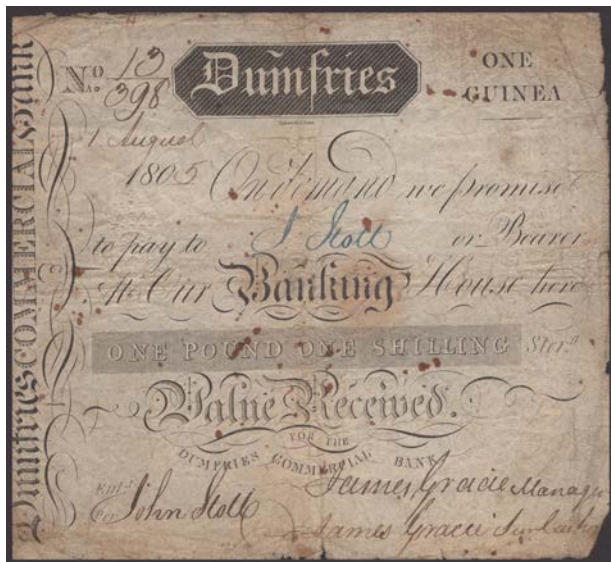 Dumfries COMMERCIAL Bank
No. 13/398
Dumfries
ONE
GUINEA
1 August
1805 On Demand we promise
to pay to J Stott or Bearer
At Our Banking House here
ONE POUND ONE SHILLING Ster.g
Value Received.
FOR THE
DUMFRIES COMMERCIAL BANK
James Gracie Manager
Ent.d
Per John Stott
James Gracie Jun